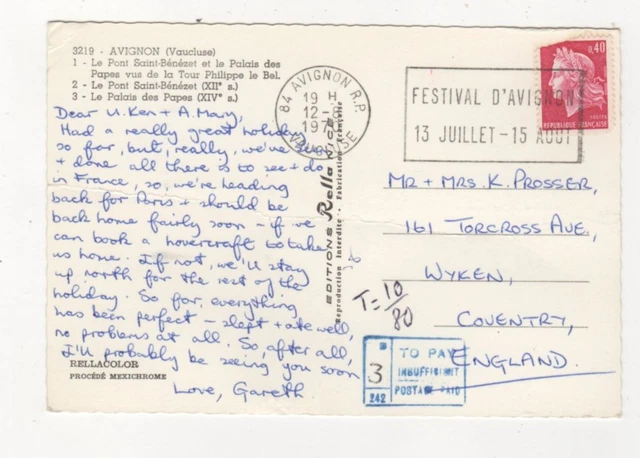 3219 - AVIGNON (Vaucluse)
1 - Le Pont Saint-Bénézet et le Palais des
Papes vus de la Tour Philippe le Bel.
2 - Le Pont Saint-Bénézet (XIIᵉ s.)
3 - Le Palais des Papes (XIVᵉ s.)
Dear U. Ken + A. Mary,
Had a really great holiday
so far, but, really, we've seen
+ done all there is to see + do
in France, so, we're heading
back for Paris + should be
back home fairly soon - if we
can book a hovercraft to take
us home. If not, we'll stay
up north for the rest of the
holiday. So far, everything
has been perfect - slept + ate well
no problems at all. So, after all,
I'll probably be seeing you soon
Love, Gareth
RELLACOLOR
PROCÉDÉ MEXICHROME
EDITIONS Rella NICE
Reproduction Interdite - Fabrication Française
84 AVIGNON R.P.
19 H
12-8
VAUCLUSE
FESTIVAL D'AVIGNON
13 JUILLET - 15 AOUT
0,40
POSTES
REPUBLIQUE FRANÇAISE
MR + MRS. K. PROSSER,
161 TORCROSS AVE,
WYKEN,
COVENTRY,
ENGLAND.
T = 10/80
3
242
TO PAY
INSUFFICIENT
POSTAGE PAID